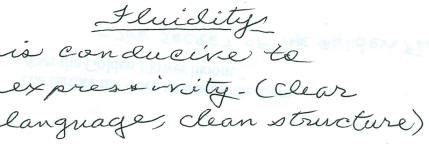 Fluidity
is conducive to
expressivity. (Clear
language, clean structure)